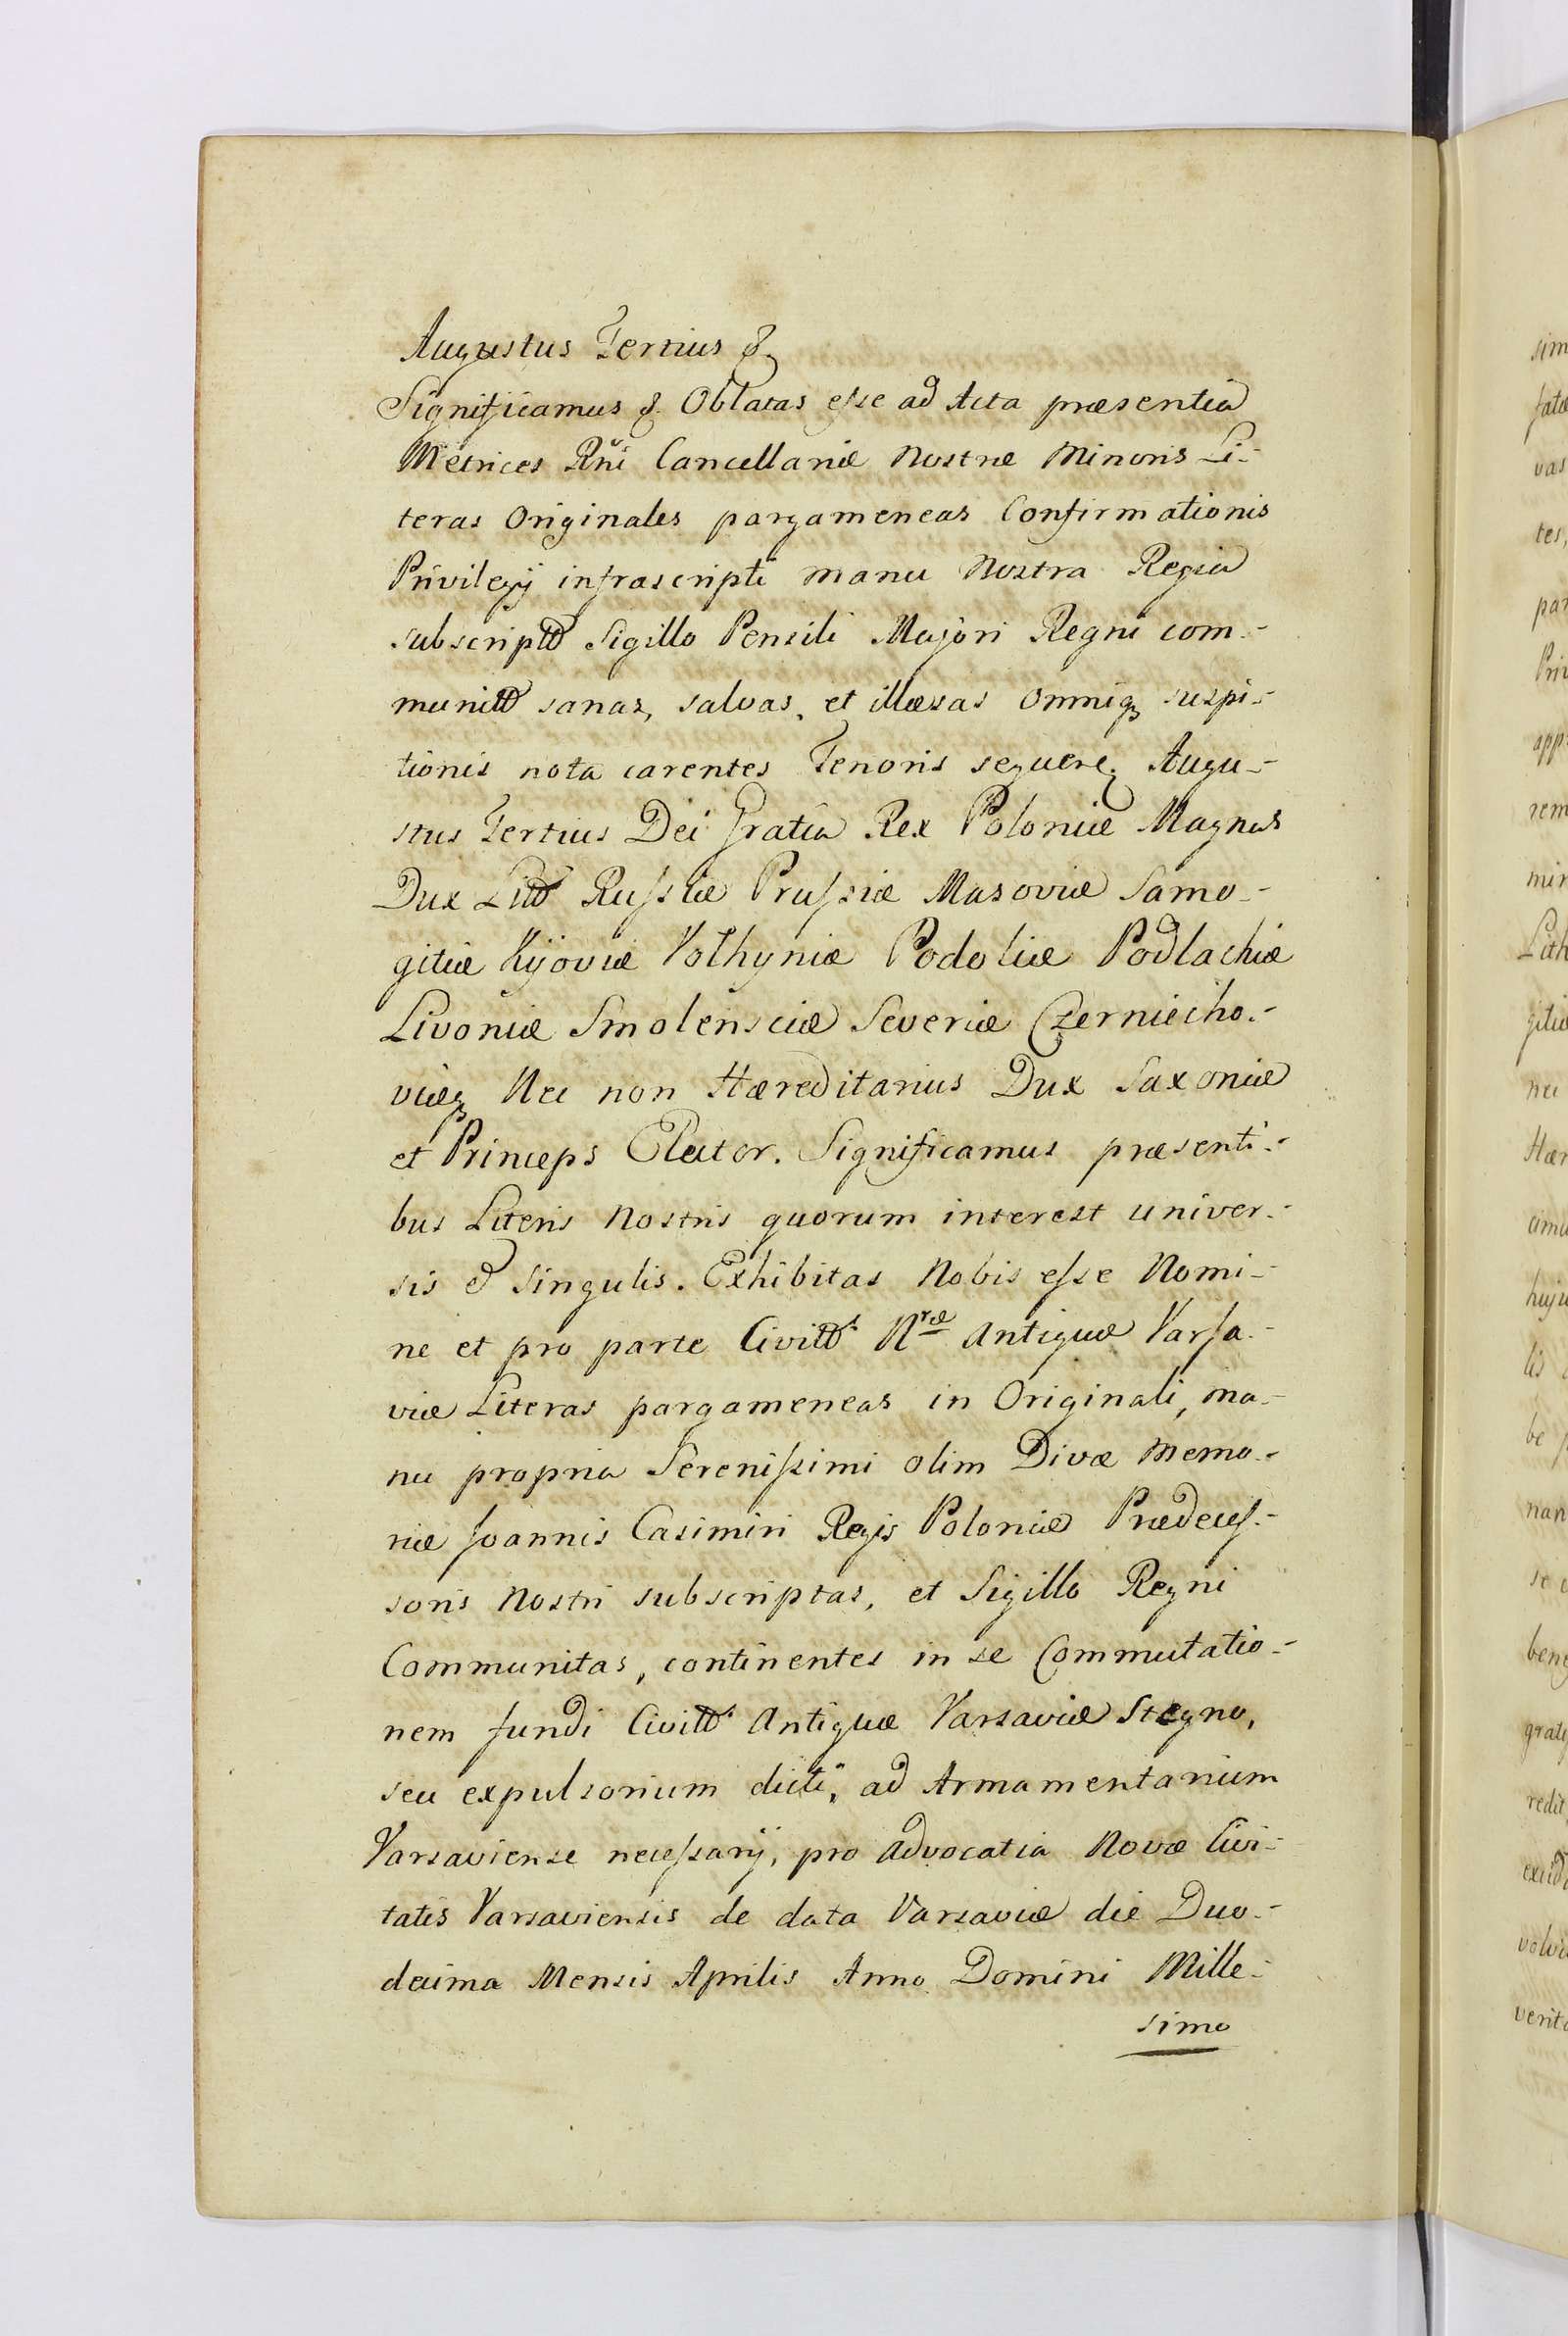 Augustus Tertius &
Significamus &. Oblatas esse ad Acta præsentia
Metrices Rni Cancellariæ Nostræ Minoris Li-
teras Originales pargameneas Confirmationis
Privilegij infrascripti manu Nostra Regia
subscriptt Sigillo Pensili Majori Regni com-
munitt sanas, salvas, et illæsas omniq; suspi-
tionis nota carentes Tenoris seqüenε; Augu-
stus Tertius Dei Gratia Rex Poloniæ Magnus
Dux Litt Russiæ Prussiæ Masoviæ Samo-
gitiæ Kijoviæ Volhyniæ Podoliæ Podlachiæ
Livoniæ Smolensciæ Severiæ Czerniecho-
viæq; Nec non Hæreditarius Dux Saxoniæ
et Princeps Elector. Significamus præsenti-
bus Literis Nostris quorum interest univer-
sis & singulis. Exhibitas Nobis esse Nomi-
ne et pro parte Civitts Nræ Antiquæ Varsa-
viæ Literas pargameneas in Originali, ma-
nu propria Serenissimi olim Divæ Memo-
riæ Joannis Casimiri Regis Poloniæ Prædeces-
soris Nostri subscriptas, et Sigillo Regni
Communitas, continentes in se Commutatio-
nem fundi Civitts Antiquæ Varsaviæ Stegno,
seu expulsorium dicti, ad Armamentarium
Varsaviense necessarij, pro Advocatia Novæ Civi-
tatis Varsaviensis de data Varsaviæ die Duo-
decima Mensis Aprilis Anno Domini Mille-
simo